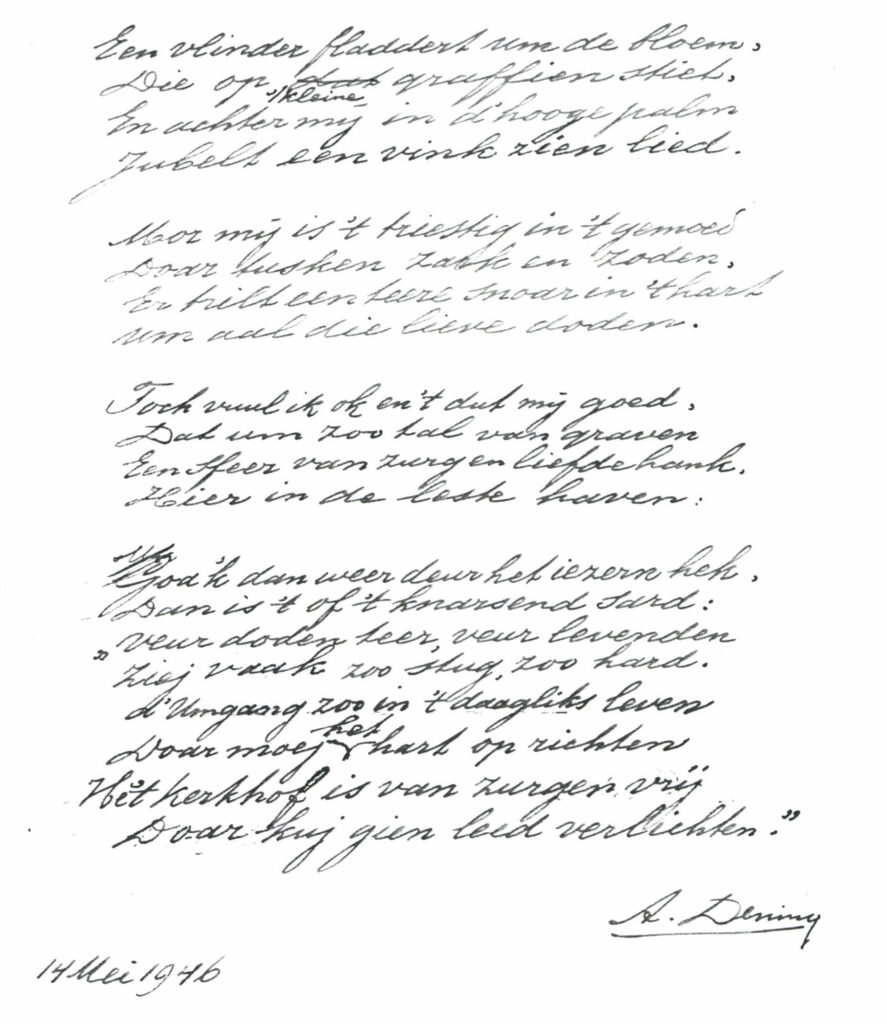 Een vlinder fladdert um de bloem,
Die op 't kleine graffien stiet,
En achter mij in d'hooge palm
Jubelt een vink zien lied.
Mor mij is 't triestig in 't gemoed
Doar tusken zark en zoden,
Er trilt een teere snoar in 't hart
um aal die lieve doden.
Toch vuul ik ok en 't dut mij goed,
Dat um zoo tal van graven
Een sfeer van zurg en liefde hank,
Hier in de leste haven:
God'k dan weer deur het iezern hek,
Dan is 't of 't knarsend sard:
"Veur doden teer, veur levenden
Ziej vaak zoo stug, zoo hard.
d'Umgang zoo in 't daagliks leven
Doar moej het hart op richten
Het kerkhof is van zurgen vrij
Doar kuj gien leed verlichten."
A. Dening
14 Mei 1946